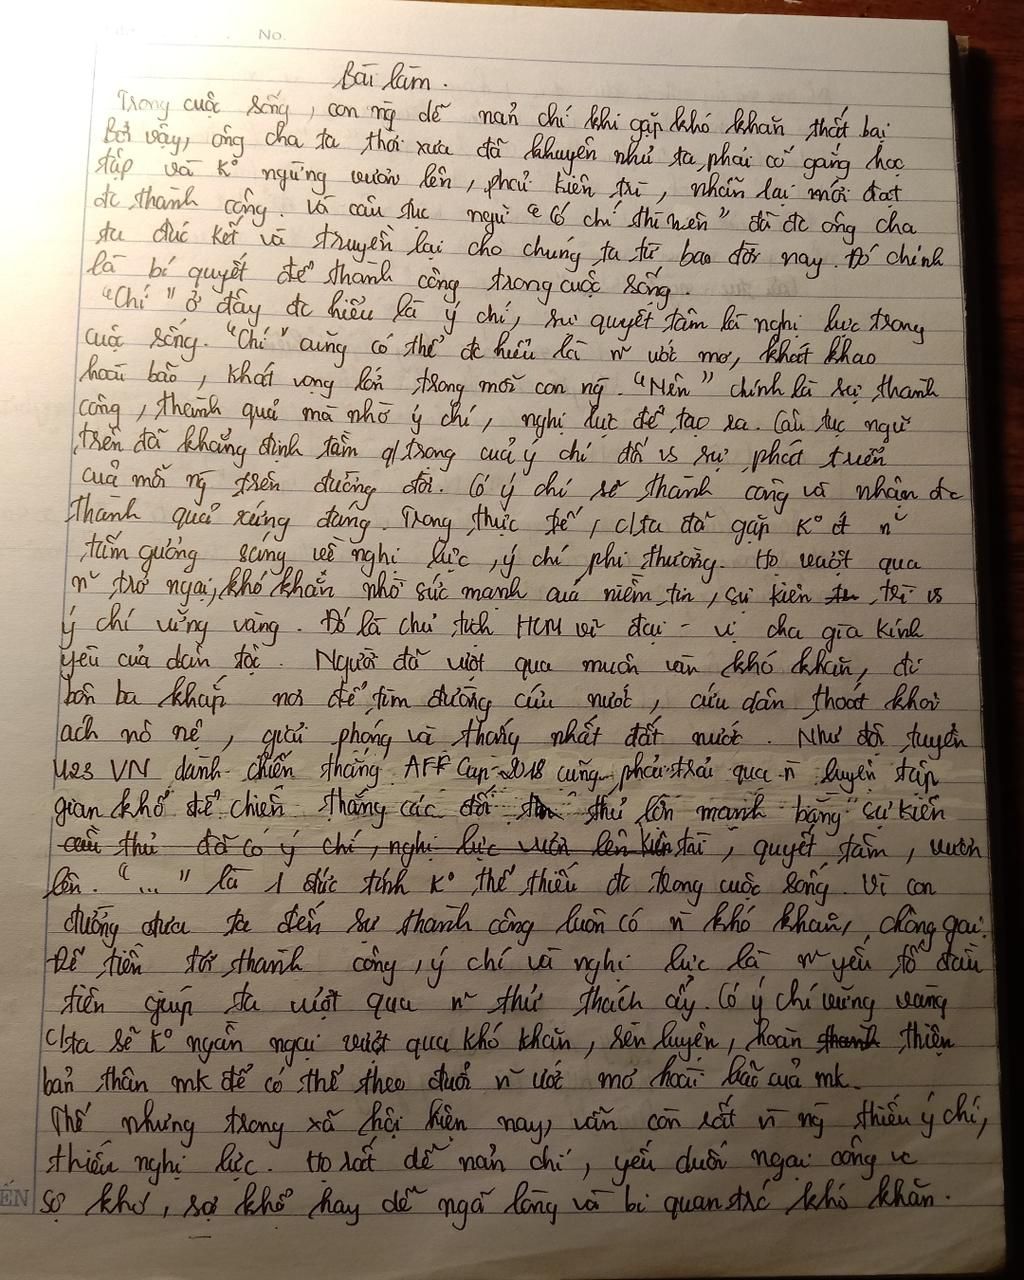 No.
Bài làm.
Trong cuộc sống, con ng dễ nản chí khi gặp khó khăn thất bại
Bởi vậy, ông cha ta thời xưa đã khuyên nhủ ta phải cố gắng học
tập và K° ngừng vươn lên, phải kiên trì, nhẫn lại mới đạt
đc thành công. Và câu tục ngữ "Có chí thì nên" đã đc ông cha
ta đúc kết và truyền lại cho chúng ta từ bao đời nay. Đó chính
là bí quyết để thành công trong cuộc sống.
"Chí" ở đây đc hiểu là ý chí, sự quyết tâm là nghị lực trong
cuộc sống. "Chí" cũng có thể đc hiểu là n~ ước mơ, khát khao
hoài bão, khát vọng lớn trong mỗi con ng. "Nên" chính là sự thành
công, thành quả mà nhờ ý chí, nghị lực để tạo ra. Câu tục ngữ
trên đã khẳng định tầm q/trong của ý chí đối vs sự phát triển
của mỗi ng trên đường đời. Có ý chí sẽ thành công và nhận đc
thành quả xứng đáng. Trong thực tế, c/ta đã gặp K° ít n~
tấm gương sáng về nghị lực, ý chí phi thường. Họ vượt qua
n~ trở ngại, khó khăn nhờ sức mạnh của niềm tin, sự kiên trì vs
ý chí vững vàng. Đó là chủ tịch HCM vĩ đại - vị cha gìa kính
yêu của dân tộc. Người đã vượt qua muôn vàn khó khăn, đi
bôn ba khắp nơi để tìm đường cứu nước, cứu dân thoát khỏi
ách nô nệ, giải phóng và thống nhất đất nước. Như đội tuyển
U23 VN dành chiến thắng AFF Cup 2018 cũng phải trải qua n~ luyện tập
gian khổ để chiến thắng các đối thủ lớn mạnh bằng sự kiên
cầu thủ đã có ý chí, nghị lực vươn lên kiên trì, quyết tâm, vươn
lên. "..." là 1 đức tính K° thể thiếu đc trong cuộc sống. Vì con
đường đưa ta đến sự thành công luôn có n~ khó khăn, chông gai.
Để tiến tới thành công, ý chí và nghị lực là n~ yếu tố đầu
tiên giúp ta vượt qua n~ thử thách ấy. Có ý chí vững vàng
c/ta sẽ K° ngần ngại vượt qua khó khăn, rèn luyện, hoàn thành thiện
bản thân mk để có thể theo đuổi n~ ước mơ hoài bão của mk.
Thế nhưng trong xã hội hiện nay, vẫn còn rất n~ ng thiếu ý chí,
thiếu nghị lực. Họ rất dễ nản chí, yếu đuối ngại công vc
sợ khó, sợ khổ hay dễ ngã lòng và bi quan trc khó khăn.